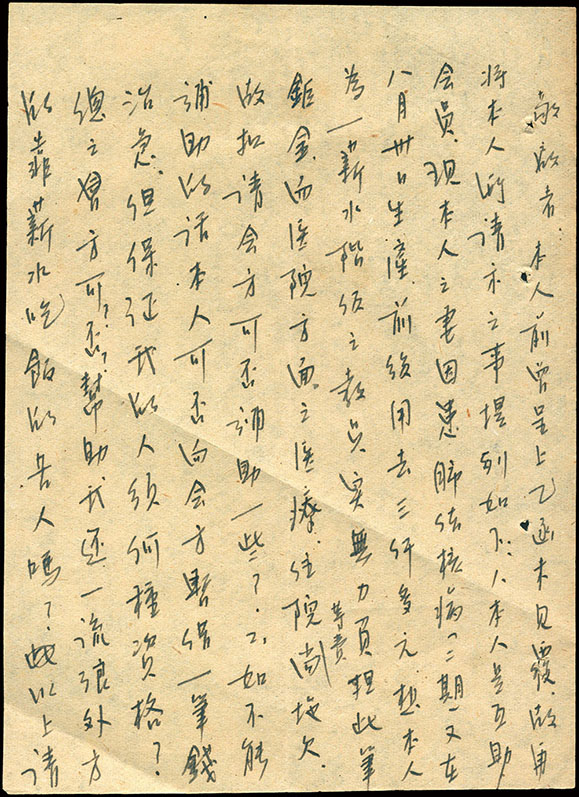 敬啟者：本人前曾呈上乙函未見覆。故再
將本人所請求之事提列如下：1.本人是互助
会員，現本人之妻因患肺结核病（三期）又在
八月卅日生產，前後用去三仟多元，想本人
為一薪水階级之教員，实無力負担此筆
鉅金，而医院方面之医療．住院等費尚拖欠．
故扣请会方可否補助一些？．2.如不能
補助的话本人可否向会方暫借一筆錢
治急．但保证我的人须何種資格？
總之会方可否？幫助我还一流浪外方
的靠薪水吃飯的呆人嗎？．此以上请